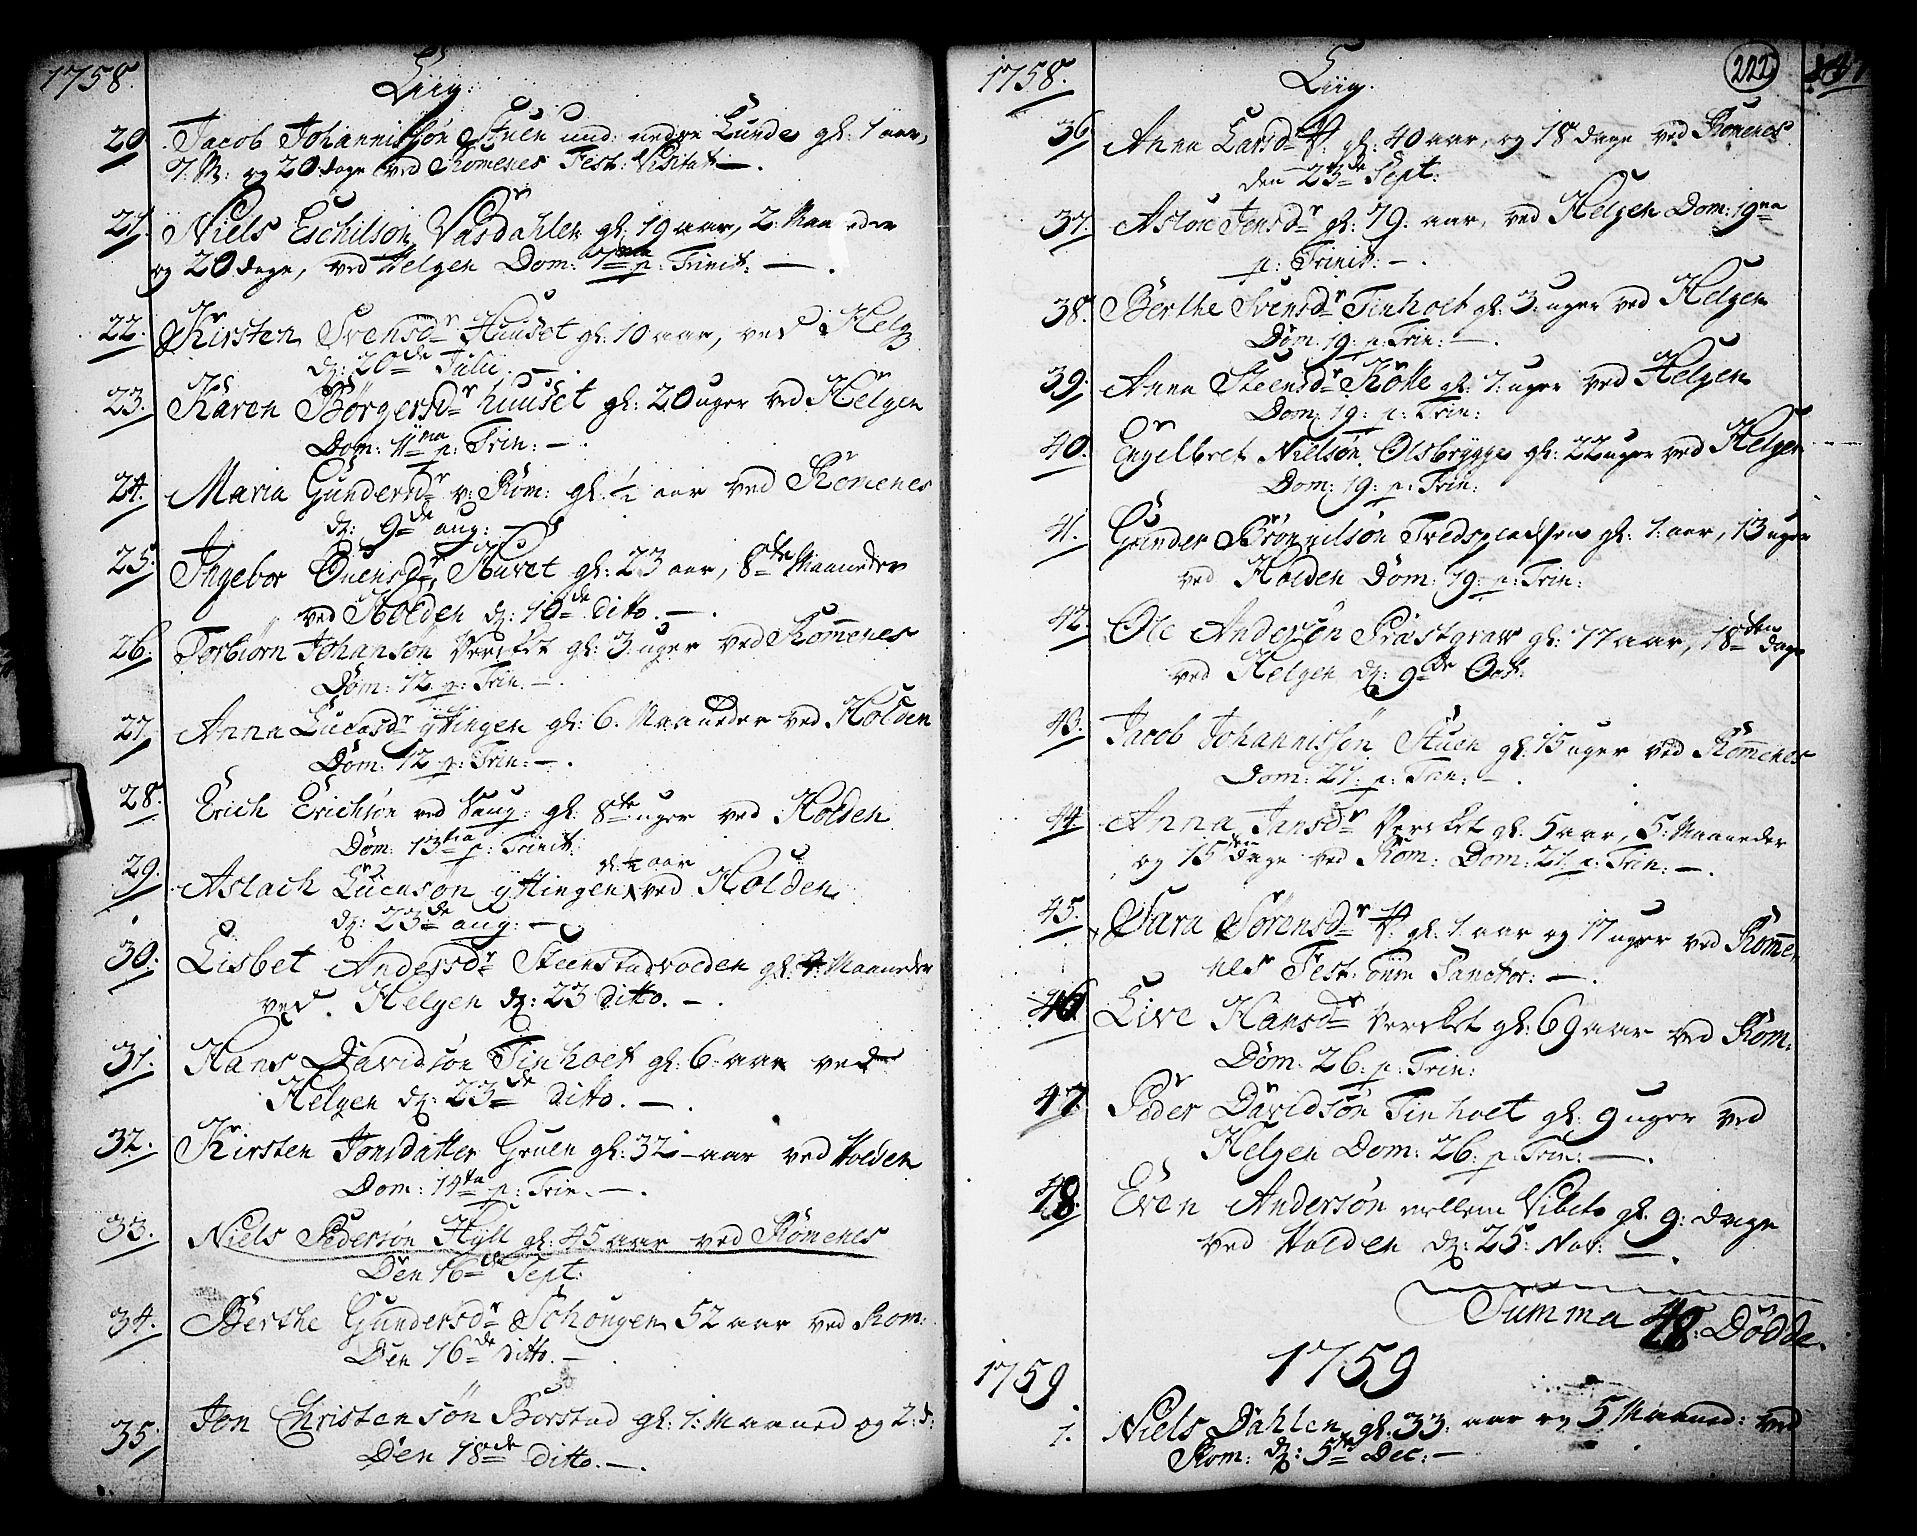 1758.
Liig.
20. Jacob Johannissøn Stuen und: nedre Lunde gl: 1 aar,
7. M: og 20 dage ved Romenes Fest: Visitat: —.
21. Niels Eschilsøn Vasdahlen gl: 19 aar, 2 Maaneder
og 20 dage, ved Helgen Dom: p: Trinit: —.
22. Kirsten Svensdr Huuset gl: 10 aar, ved Helg
d: 20de Julii. —.
23. Karen Börgersdr huuset gl: 20 uger ved Helgen
Dom: 11ma p: Trin: —.
24. Maria Gundersdr v: Rom: gl: ½ aar ved Romenes
d: 9de aug: —
25. Ingebor Ouensdr gl: 23 aar, 8te Maaneder
ved Holden d: 10de ditto. —.
26. Torbiørn Johansøn Verket gl: 3. uger ved Romenes
Dom: 12 p: Trin. —.
27. Anna Lucasdr ÿttingen gl: 6. Maaneder ved Holden
Dom: 12 p: Trin: —.
28. Erich Erichsøn ved Saug: gl: 8te uger ved Holden
Dom: 13tia p: Trinit:
29. Aslach Lucasøn ÿttingen gl: ½ aar ved Holden
d: 23de aug: —.
30. Lisbet Andersdr Steenstadvolden gl: 4: Maaneder
ved. Helgen d: 23 ditto. —.
31. Hans Davidsøn Tinholt gl: 6. aar ved
Helgen d: 23de ditto. —.
32. Kirsten Jonsdatter Gruen gl: 32 aar ved Holden
Dom: 14ta p: Trin. —.
33. Niels Pedersøn Hÿll gl: 45 aar ved Romenes
Den 16de Sept:
34. Berthe Gundersdr Schougen 52 aar ved Rom:
Den 16de ditto. —
35. Jon Christensøn Borstad gl: 1: Maaned og 2: d:
Den 18de ditto. —.
1758.
Liig.
222
36. Anna Larsdr V. gl: 40 aar, og 18 dage ved Romenes
den 23de Sept:
37. Aslöu Jensdr gl: 79. aar, ved Helgen Dom: 19na
p: Trinit: —.
38. Berthe Svensdr Tinholt gl: 3: uger ved Helgen
Dom. 19: p: Trin: —.
39. Anna Steensdr Kötte gl: 7: uger ved Helgen
Dom: 19: p: Trin:
40. Engelbret Nielsøn Olsbrÿgge gl: 22 uger ved Helgen
Dom: 19: p: Trin:
41. Gunder Brønnilsøn Fredspladsen gl: 1. aar, 13 uger
ved Holden Dom: 19: p: Trin:
42. Ole Andersøn Præstgrav gl: 77 aar, 18ten dage
ved Helgen d: 9de Oct:
43. Jacob Johannissøn Stuen gl: 15 uger ved Romenes
Dom: 21. p: Trin: —.
44. Anna Jansdr Verket gl: 5 aar, 5: Maaneder
og 15 dage ved Rom: Dom: 21. p: Trin: —.
45. Sara Sörensdr V. gl: 1. aar og 17 uger ved Rome
nes Fest: omn Sanctor: —.
46 Live Hansdr Verket gl: 69 aar ved Rom:
Dom: 26. p: Trin:
47. Peder Davidsøn Tinholt gl: 9 uger ved
Helgen Dom: 26. p: Trin: —.
48. Even Andersøn mellem Vibeto gl: 9: dage
ved Holden d: 25: Nov: —.
Summa 48: Dödde.
1759
1759
1. Niels Dahlen gl: 33 aar og 5 Maaned: ved
Rom: d: 5te Dec: —